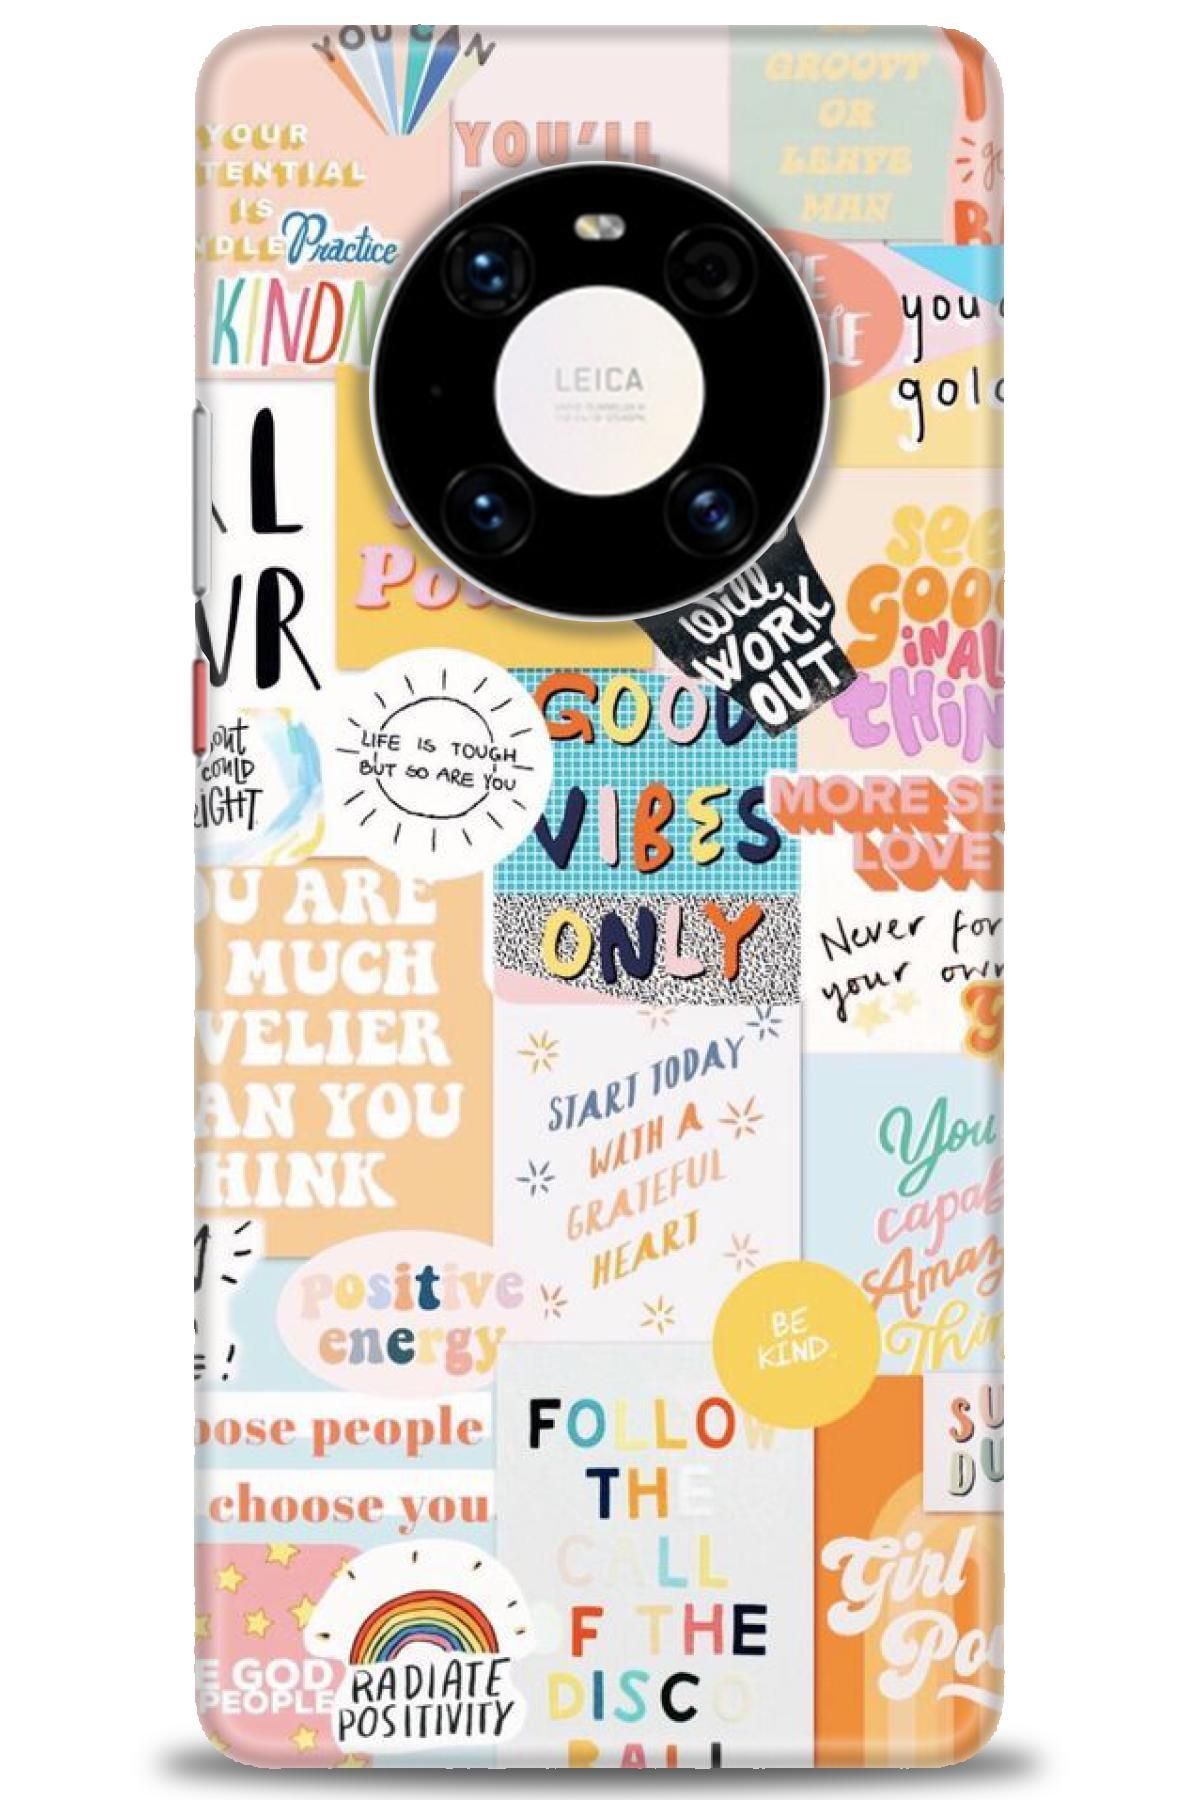 YOU CAN
YOUR
TENTIAL
IS
DLE
Practice
KINDN
YOU'LL
GROOVY
OR
LEAVE
MAN
you
gold
LEICA
L
VR
Po
Will
WORK
OUT
see
GOOD
IN ALL
THIN
out
COULD
IGHT
LIFE IS TOUGH
BUT SO ARE YOU
GOOD
VIBES
ONLY
MORE SE
LOVE
Never for
your own
U ARE
MUCH
VELIER
AN YOU
HINK
START TODAY
WITH A
GRATEFUL
HEART
You
capab
Amaz
Thin
positive
energy
BE
KIND.
ose people
choose you.
FOLLOW
THE
CALL
OF THE
DISCO
BALL
SU
DU
Girl
Pow
E GOD
PEOPLE
RADIATE
POSITIVITY